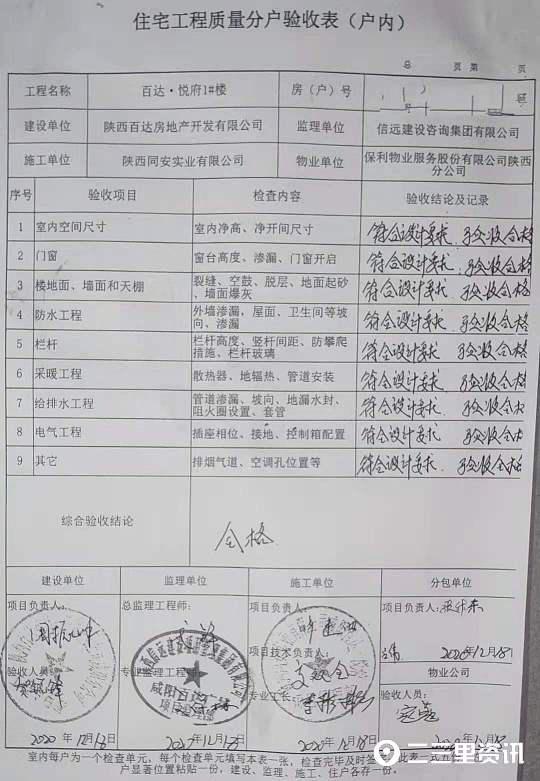 住宅工程质量分户验收表（户内）
总 页第 页
工程名称 百达·悦府1#楼 房（户）号
建设单位 陕西百达房地产开发有限公司 监理单位 信远建设咨询集团有限公司
施工单位 陕西同安实业有限公司 物业单位 保利物业服务股份有限公司陕西
分公司
序号 验收项目 检查内容 验收结论及记录
1 室内空间尺寸 室内净高、净开间尺寸 符合设计要求，验收合格
2 门窗 窗台高度、渗漏、门窗开启 符合设计要求，验收合格
3 楼地面、墙面和天棚 裂缝、空鼓、脱层、地面起砂
、墙面爆灰 符合设计要求 验收合格
4 防水工程 外墙渗漏，屋面、卫生间等坡
向、渗漏 符合设计要求 验收合格
5 栏杆 栏杆高度、竖杆间距、防攀爬
措施、栏杆玻璃 符合设计要求 验收合格
6 采暖工程 散热器、地辐热、管道安装 符合设计要求 验收合格
7 给排水工程 管道渗漏、坡向、地漏水封、
阻火圈设置、套管 符合设计要求 验收合
8 电气工程 插座相位、接地、控制箱配置 符合设计要求，验收合
9 其它 排烟气道、空调孔位置等 符合设计要求，验收合格
综合验收结论 合格
建设单位 监理单位 施工单位 分包单位
项目负责人： 总监理工程师： 项目负责人： 项目负责人：
项目技术负责人： 2020年12月18日
验收人员： 专业监理工程师： 专业工长： 物业公司
验收人员：
咸阳百达
项目监理部
2020年12月18日 2020年12月18日 2020年12月18日
室内每户为一个检查单元，每个检查单元填写本表一张，检查完毕及时签
户显著位置粘贴一份，建设、监理、施工、住户各存一份。
二三里资讯